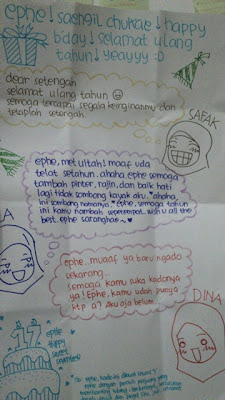 ephe! saengil chukae! happy
bday! selamat ulang
tahun! yeayyy :D
dear setengah
selamat ulang tahun
semoga tercapai segala keinginanmu dan
tetaplah setengah.
SAFAK
ephe, met ultah! maaf uda
telat setahun. ahaha ephe semoga
tambah pinter, rajin, dan baik hati
lagi tidak sombong kayak aku. *ahaha
ini sombong namanya* ephe, semoga tahun
ini kamu nambah wish u all the
best ephe saranghae~♥
A
ephe.. muaaf ya baru ngado
sekarang..
semoga kamu suka kadonya
ya! Ephe, kamu udah punya
ktp a? Aku aja belum
DINA
17
ephe
happy
sweet
seventeen!